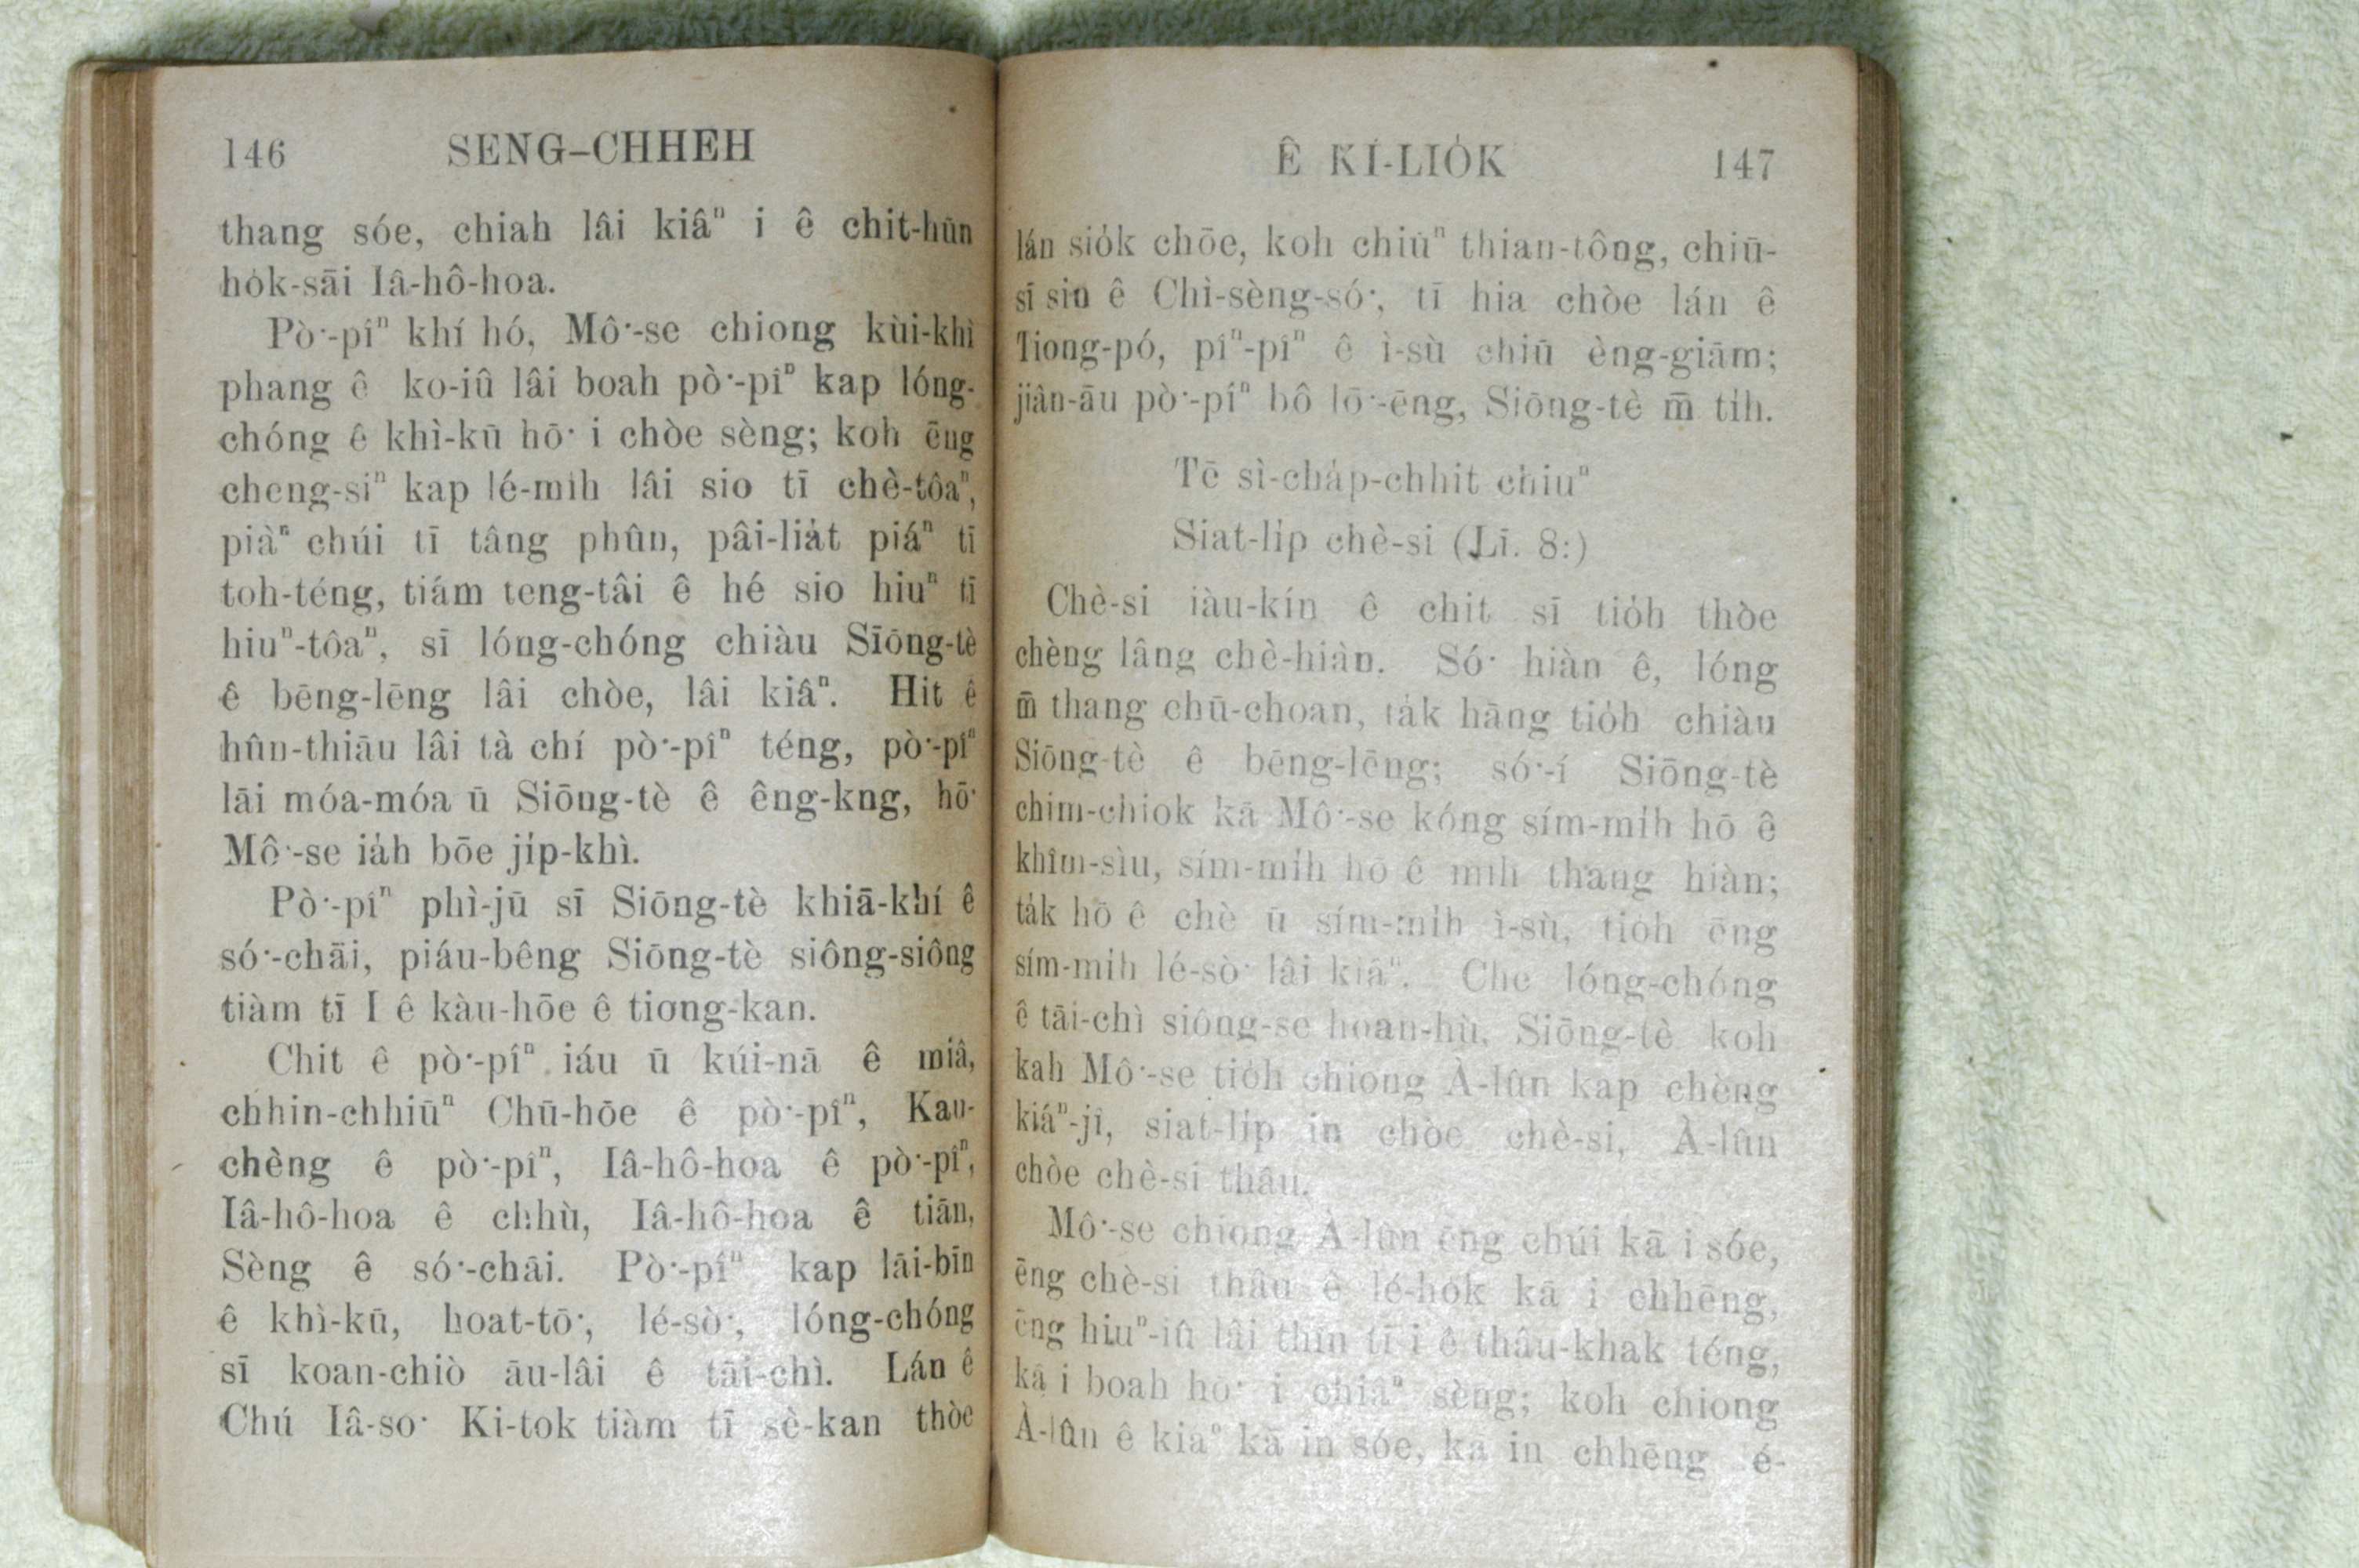 146 SENG–CHHEH
thang sóe, chiah lâi kiâⁿ i ê chit-hūn
ho̍k-sāi Iâ-hô-hoa.
Pò͘-pîⁿ khí hó, Mô͘-se chiong kùi-khì
phang ê ko-iû lâi boah pò͘-pîⁿ kap lóng-
chóng ê khì-kū hō͘ i chòe sèng; koh ēng
cheng-siⁿ kap lé-mih lâi sio tī chè-tôaⁿ,
piàⁿ chúi tī tâng phûn, pâi-lia̍t piáⁿ tī
toh-téng, tiám teng-tâi ê hé sio hiuⁿ tī
hiuⁿ-tôaⁿ, sī lóng-chóng chiàu Sīōng-tè
ê bēng-lēng lâi chòe, lâi kiâⁿ. Hit ê
hûn-thiāu lâi tà chí pò͘-pîⁿ téng, pò͘-pîⁿ
lāi móa-móa ū Siōng-tè ê êng-kng, hō͘
Mô͘-se ia̍h bōe ji̍p-khì.
Pò͘-pîⁿ phì-jū sī Siōng-tè khiā-khí ê
só͘-chāi, piáu-bêng Siōng-tè siông-siông
tiàm tī I ê kàu-hōe ê tiong-kan.
Chit ê pò͘-pîⁿ iáu ū kúi-nā ê miâ,
chhin-chhiūⁿ Chū-hōe ê pò͘-pîⁿ, Kau-
chèng ê pò͘-pîⁿ, Iâ-hô-hoa ê pò͘-pîⁿ,
Iâ-hô-hoa ê chhù, Iâ-hô-hoa ê tiān,
Sèng ê só͘-chāi. Pò͘-pîⁿ kap lāi-bīn
ê khì-kū, hoat-tō͘, lé-sò͘, lóng-chóng
sī koan-chiò āu-lâi ê tāi-chì. Lán ê
Chú Iâ-so͘ Ki-tok tiàm tī sè-kan thòe
Ê KÍ-LIO̍K 147
lán sio̍k chōe, koh chiūⁿ thian-tông, chiū-
sī sin ê Chì-sèng-só͘, tī hia chòe lán ê
Tiong-pó, pîⁿ-pîⁿ ê ì-sù chiū èng-giām;
jiân-āu pò͘-pîⁿ bô lō͘-ēng, Siōng-tè m̄ ti̍h.
Tē sì-cha̍p-chhit chiuⁿ
Siat-li̍p chè-si (Lī. 8:)
Chè-si iàu-kín ê chit sī tio̍h thòe
chèng lâng chè-hiàn. Só͘ hiàn ê, lóng
m̄ thang chū-choan, ta̍k hāng tio̍h chiàu
Siōng-tè ê bēng-lēng; só͘-í Siōng-tè
chim-chiok kā Mô͘-se kóng sím-mi̍h hō ê
khîm-sìu, sím-mi̍h hō ê mih thang hiàn;
ta̍k hō ê chè ū sím-mi̍h ì-sù, tio̍h ēng
sím-mi̍h lé-sò͘ lâi kiâⁿ. Che lóng-chóng
ê tāi-chì siông-se hoan-hù, Siōng-tè koh
kah Mô͘-se tio̍h chiong À-lûn kap chèng
kiáⁿ-jî, siat-li̍p in chòe chè-si, À-lûn
chòe chè-si thâu.
Mô͘-se chiong À-lûn ēng chúi kā i sóe,
ēng chè-si thâu ê lé-ho̍k kā i chhēng,
ēng hiuⁿ-iû lâi thîn tī i ê thâu-khak téng,
kā i boah hō͘ i chiâⁿ sèng; koh chiong
À-lûn ê kiaⁿ kā in sóe, kā in chhēng é-